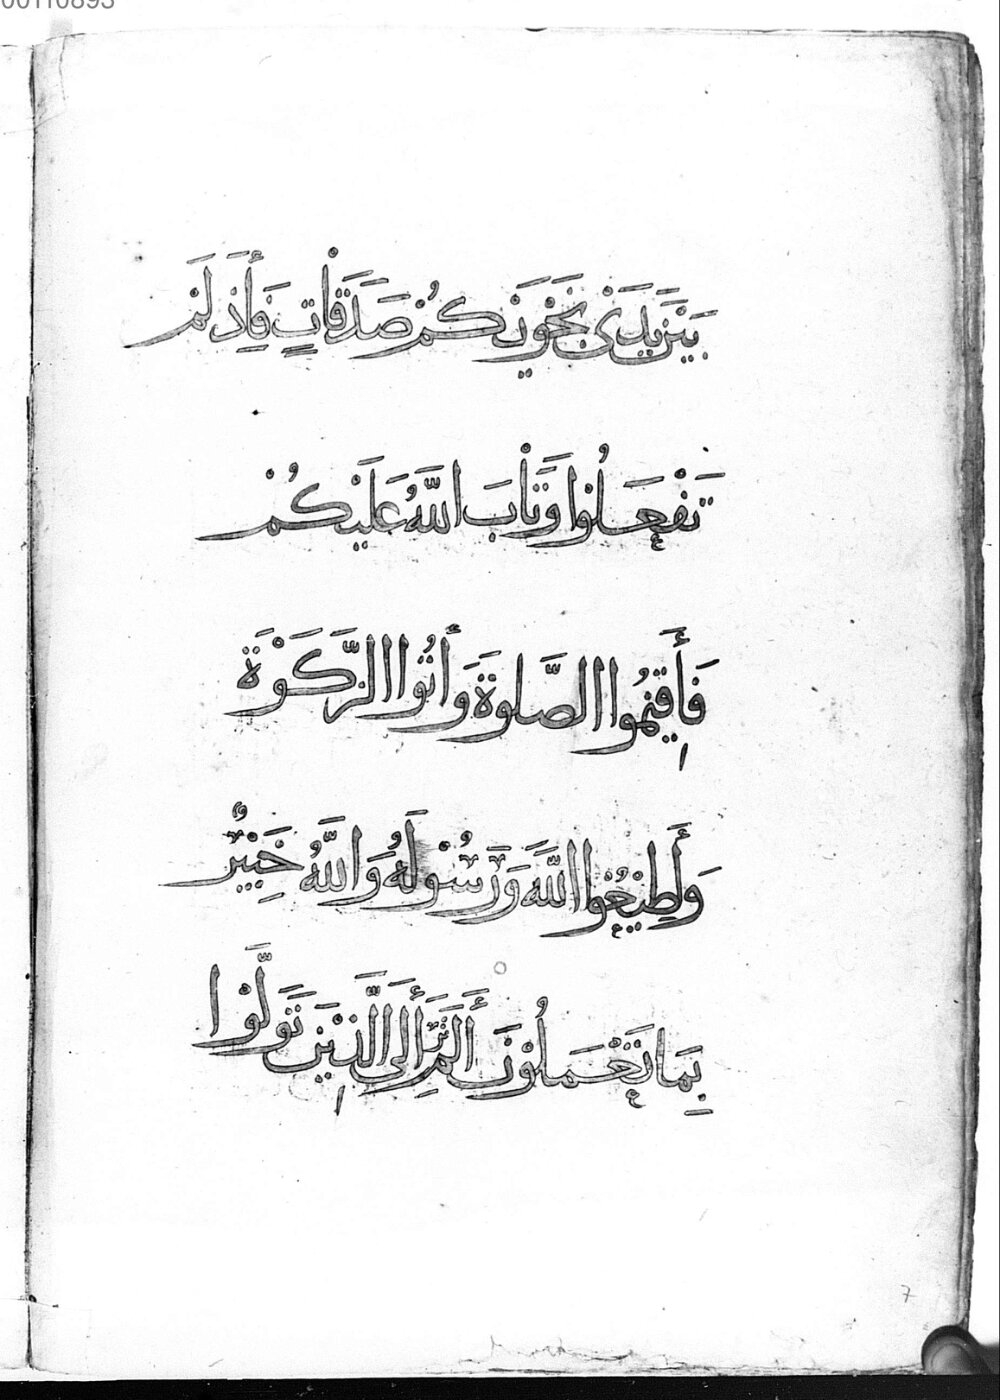 00110893
بَيْنَ يَدَيْ نَجْوَيٰكُمْ صَدَقَاتٍ فَإِذْ لَمْ
تَفْعَلُوْا وَتَابَ اللَّهُ عَلَيْكُمْ
فَأَقِيْمُوا الصَّلَوةَ وَأَتُوا الزَّكَوْةَ
وَأَطِيْعُوْا اللَّهَ وَرَسُوْلَهُ وَاللَّهُ خَبِيْرٌ
بِمَا تَعْمَلُوْنَ أَلَمْ تَرَ أِلَى الَّذِيْنَ تَوَلَّوْا
7